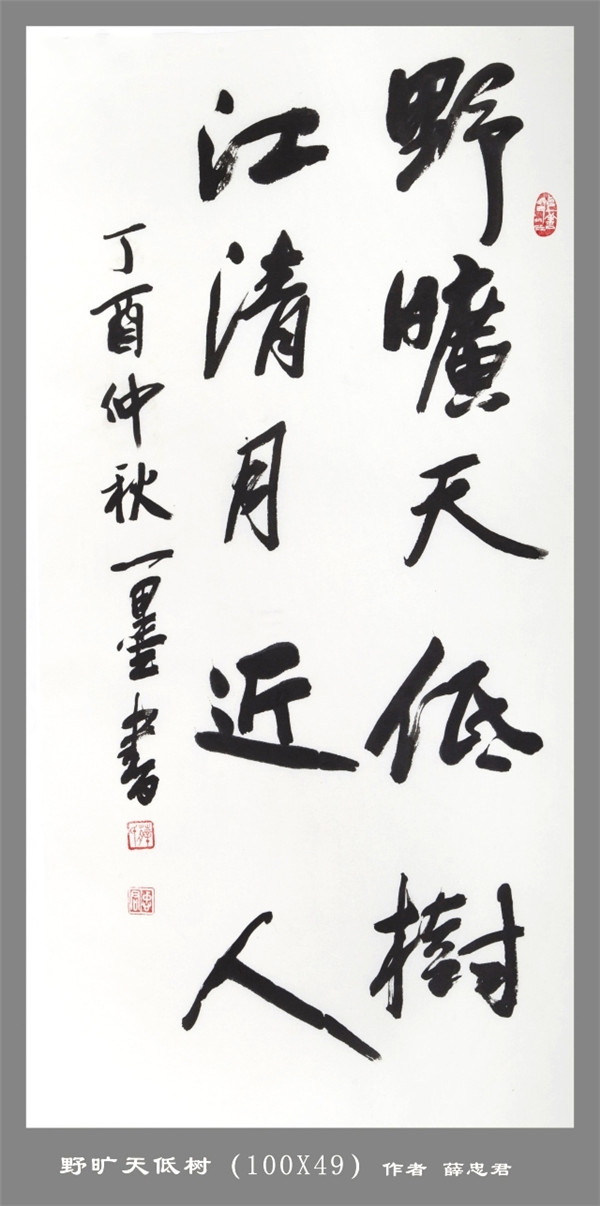 野曠天低樹
江清月近人
丁酉仲秋一墨書
野旷天低树 (100X49) 作者 薛忠君